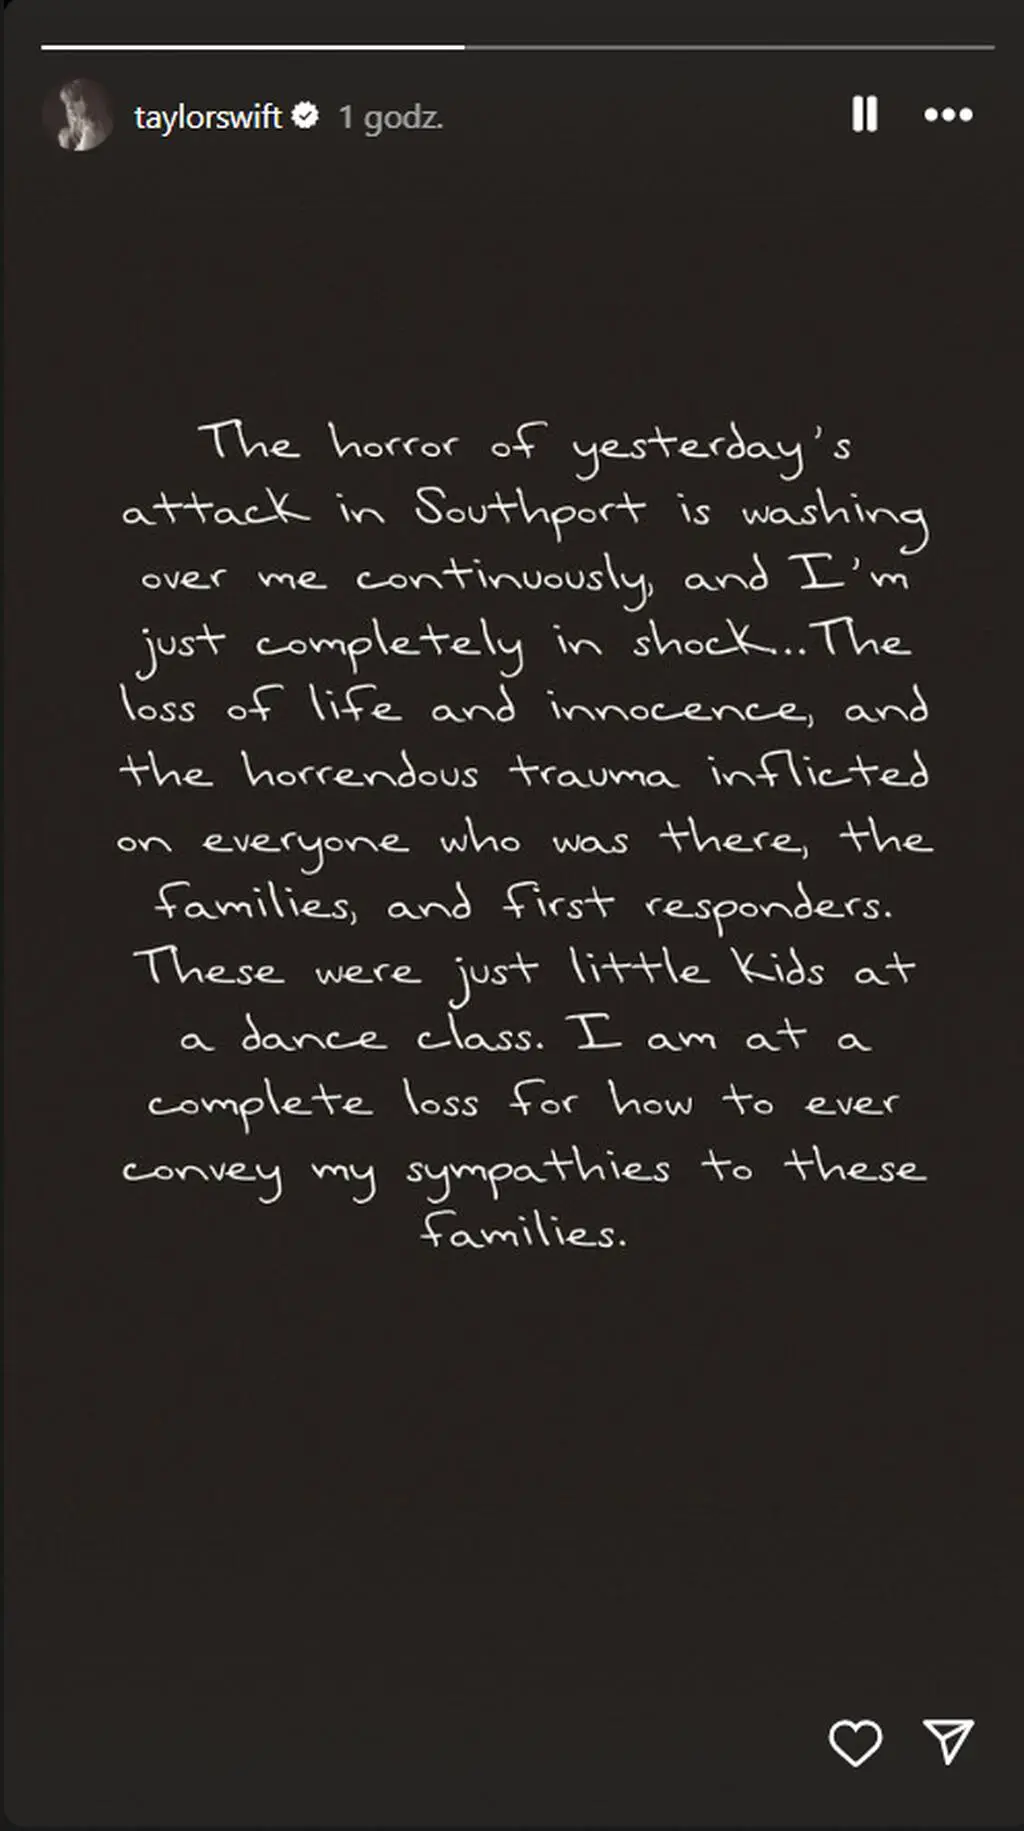 taylorswift 1 godz.
The horror of yesterday's
attack in Southport is washing
over me continuously, and I'm
just completely in shock...The
loss of life and innocence, and
the horrendous trauma inflicted
on everyone who was there, the
families, and first responders.
These were just little kids at
a dance class. I am at a
complete loss for how to ever
convey my sympathies to these
families.